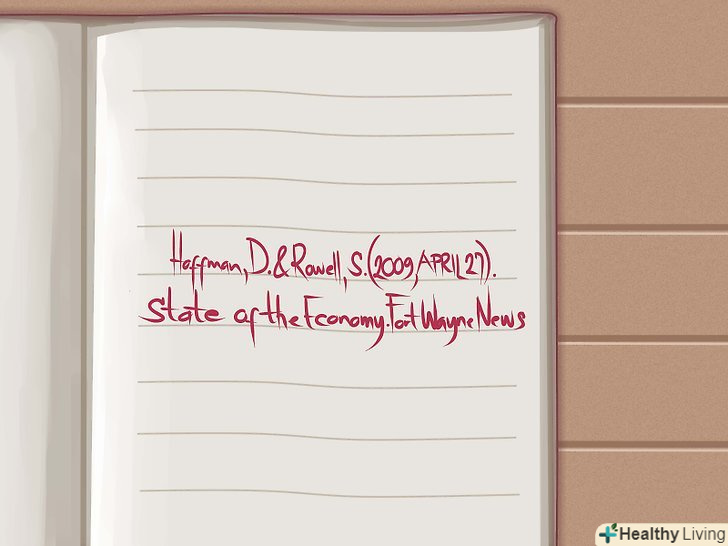 Hoffman, D. & Rowell, S. (2009, APRIL 27).
State of the Economy. Fort Wayne News
Healthy Living